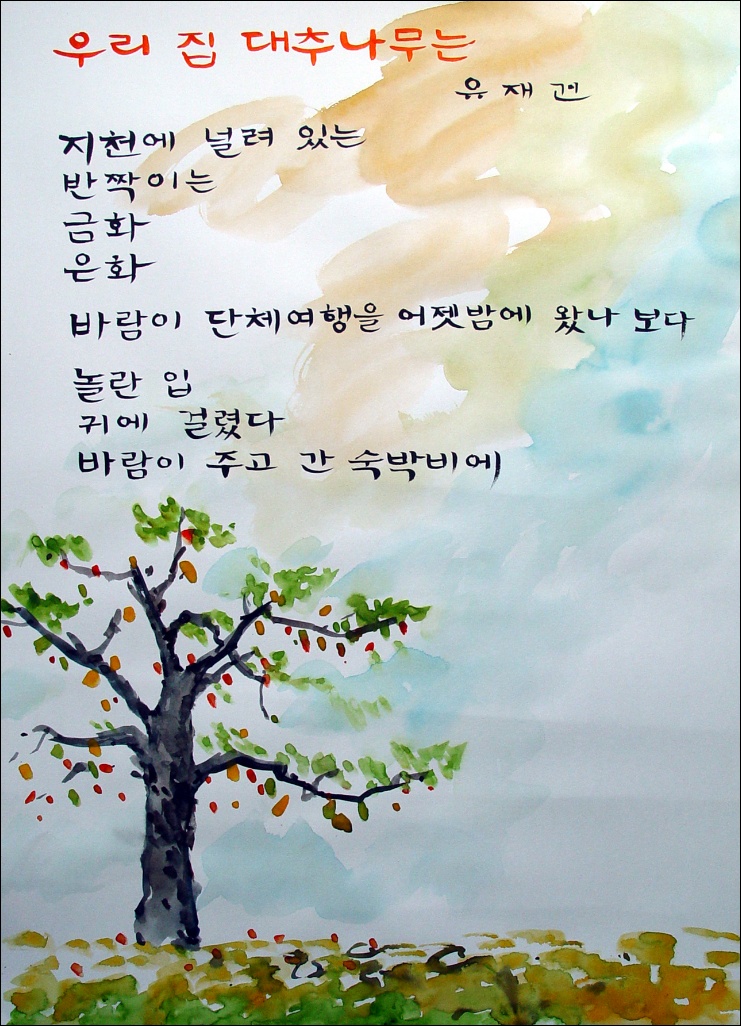 우리 집 대추나무는
유재건
지천에 널려 있는
반짝이는
금화
은화
바람이 단체여행을 어젯밤에 왔나 보다
놀란 입
귀에 걸렸다
바람이 주고 간 숙박비에